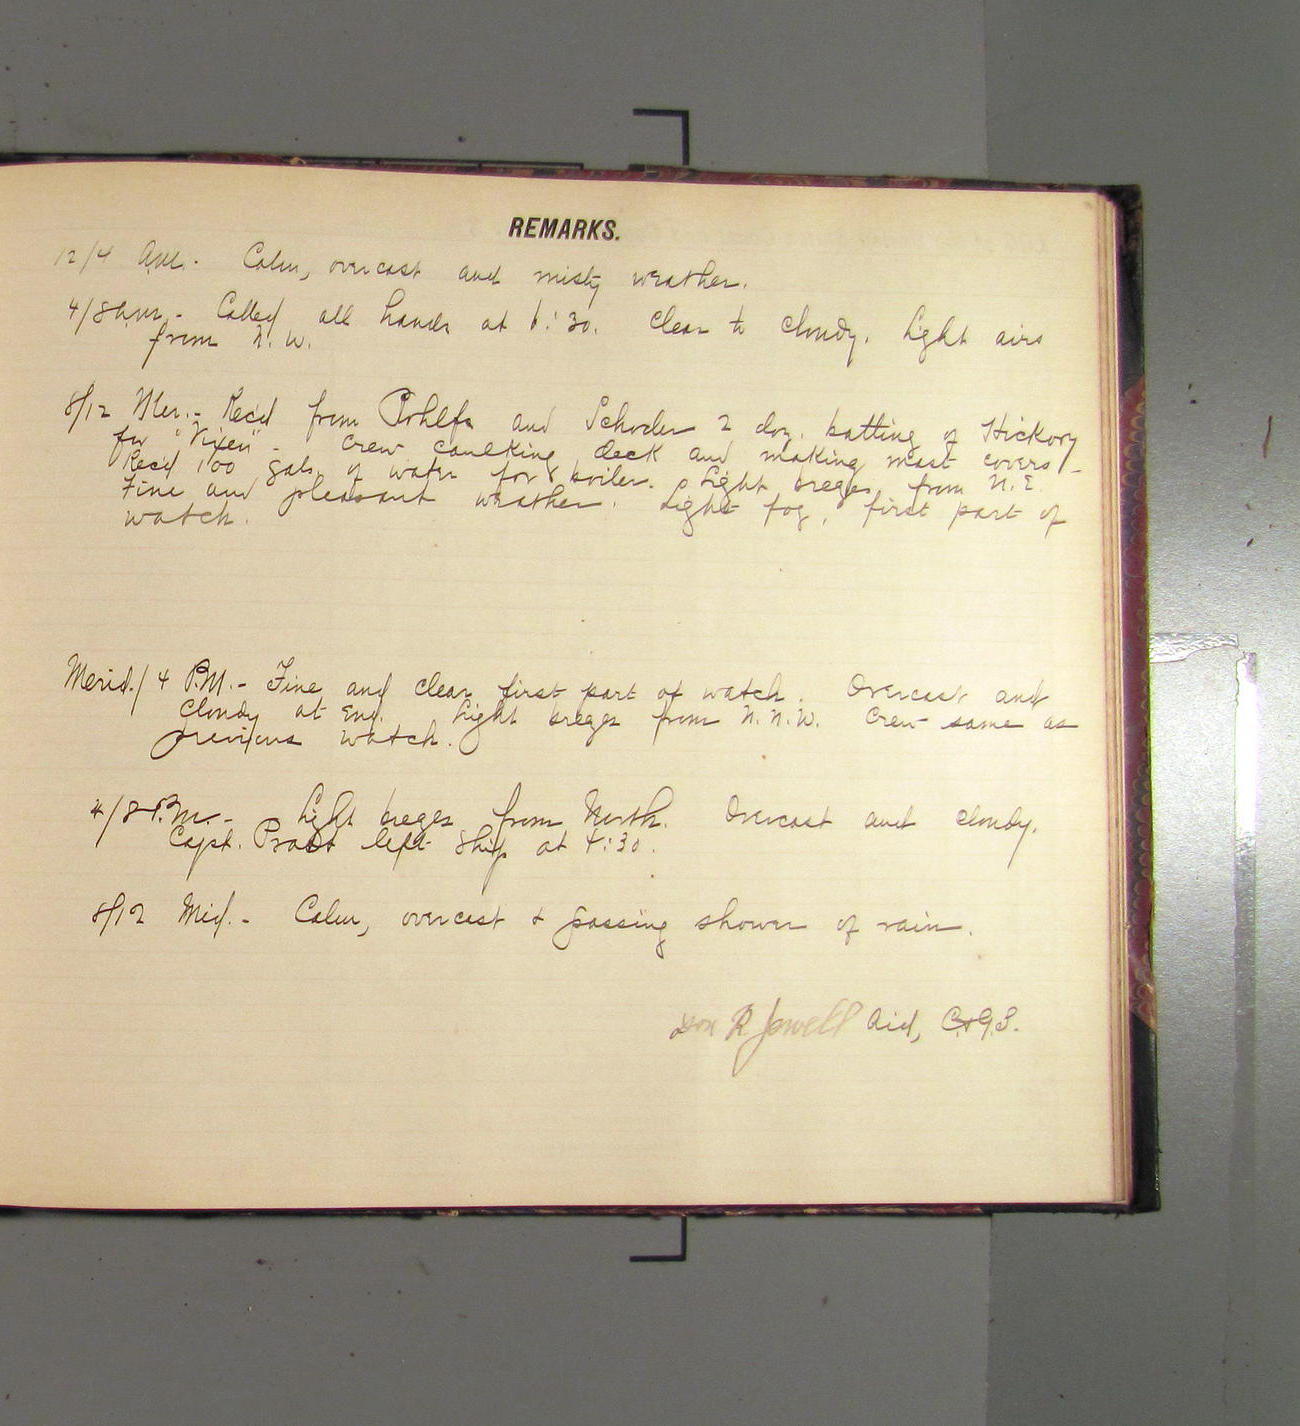 REMARKS.
12/4 A.M.- Calm, overcast and misty weather.
4/8 A.M.- Called all hands at 6:30. Clear to cloudy. Light airs
from N.W.
8/12 Mer.- Rec'd from and Schoder 2 doz. batting of Hickory
for "Vixen". Crew caulking deck and making mast covers-
Rec'd 100 gals. of water for boiler. Light breezes from N.E.
Fine and pleasant weather. Light fog, first part of
watch.
Merid./4 P.M.- Fine and clear first part of watch. Overcast and
cloudy at end. Light breeze from N.N.W. Crew same as
previous watch.
4/8 P.M.- Light breezes from North. Overcast and cloudy.
Capt. Pratt left ship at 4:30.
8/12 Mid.- Calm, overcast & passing shower of rain.
R Jewell Aid, C.&G.S.